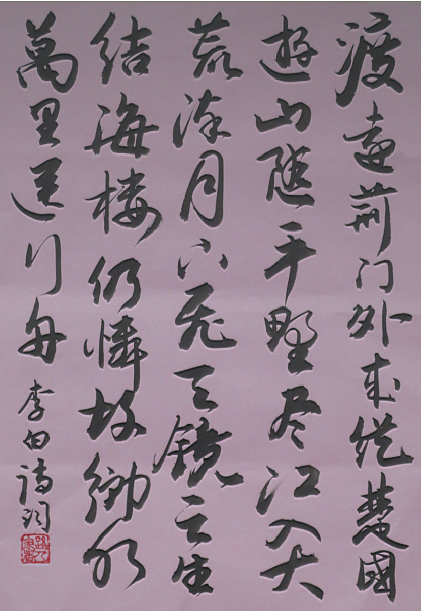 渡遠荆门外来從楚國
遊山随平野尽江入大
荒流月下飛天鏡云生
結海楼仍憐故鄉水
萬里送行舟 李白诗